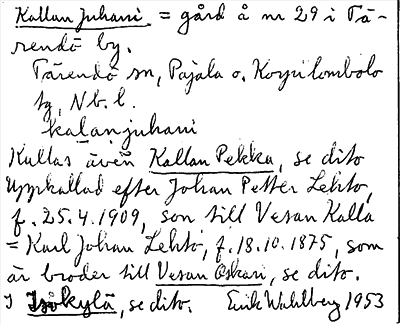 Kallan Juhani = gård å nr 29 i Tä-
rendö by.
Tärendö sn, Pajala o. Korpilombolo
tg, Nb. l.
kalanjuhani
Kallas även Kallan Pekka, se dito
Uppkallad efter Johan Petter Lehto,
f. 25.4.1909, son till Vesan Kalla
= Karl Johan Lehto, f. 18.10.1875, som
är broder till Vesan Oskari, se dito.
I Isokylä, se dito. Erik Wahlberg 1953